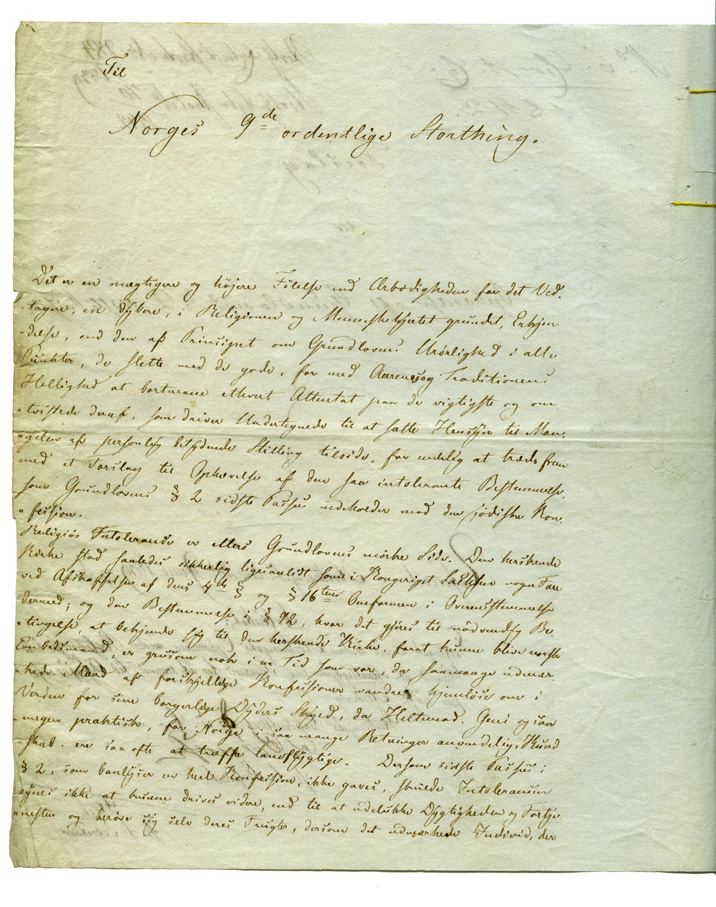 Til
Norges 9de ordentlige Storthing.
Det er en mægtigere og høiere Følelse end Ærbødigheden for det Ved-
tagne, en dybere, i Religionen og Menneskehjertet grundet, Erkjen-
delse, end den af Princippet om Grundlovens Urørlighed i alle
Punkter, de slette med de gode, for med Aarenes og Traditionens
Hellighed at bortvane ethvert Attentat paa de vigtigste og om-
tvistede deraf, som driver Undertegnede til at sætte Hensyn til Man-
gelen af personlig betydende Stilling tilside, for endelig at træde frem
med et Forslag til Ophævelse af den saa intolerante Bestemmelse,
som Grundlovens § 2 sidste Passus indeholder mod den jødiske Kon-
fession.
Religiøs Intolerance er ellers Grundlovens mørke Side. Den herskende
Kirke stod saaledes sikkerlig ligesaalidt som i Kongeriget Sachsen nogen Fare
ved Afskaffelsen af dens 4de § og § 16tens Omformen i Overensstemmelse
dermed; og den Bestemmelse i § 92, hvor det gjøres til nødvendig Be-
tingelse, at bekjende sig til den herskende Kirke, forat kunne blive norsk
Embedsmand, er grusom nok i en Tid som vor, da saamange udmær-
kede Mænd af forskjellige Konfessioner vandre hjemløse om i
Verden for sine borgerlige Dyders Skyld, da Heltemod, Geni og saa
megen praktisk, for Norge i saa mange Retninger anvendelig, Kund-
skab ere saa ofte at træffe landflygtige. Dersom sidste Passus i
§ 2, som banlyser en heel Konfession, ikke gaves, skulde Intolerancen
synes ikke at kunne drives videre, end til at udelukke Dygtigheden og Fortje-
nesten og berøve sig selv deres Frugter, dersom det udmærkede Individ, der